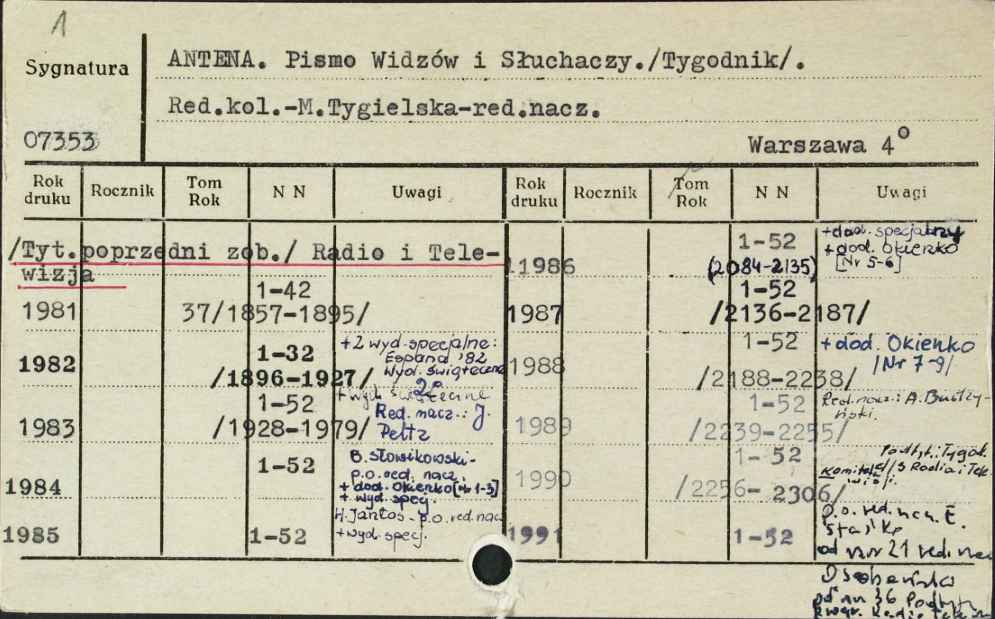 1
Sygnatura
ANTENA. Pismo Widzów i Słuchaczy./Tygodnik/.
Red.kol.-M.Tygielska-red.nacz.
07353
Warszawa 4°
Rok druku Rocznik Tom Rok N N Uwagi
/Tyt.poprzedni zob./ Radio i Tele-
wizja
1981 1-42
37/1857-1895/
1982 1-32
/1896-1927/
+2 wyd. specjalne:
Espana '82
Wyd. świąteczne
1983 1-52
/1928-1979/
+ wyd. świąteczne
Red. nacz.: J.
Peltz
1984 1-52
B. Słowikowski-
p.o. red. nacz.
+ dod. Okienko [nr 1-3]
+ wyd. specj.
1985 1-52
H. Jantos - p.o. red. nacz
+ wyd. specj.
Rok druku Rocznik Tom Rok N N Uwagi
1986 1-52
(2084-2135)
+dod. specjalny
+dod. Okienko
[Nr 5-6]
1987 1-52
/2136-2187/
1988 1-52
/2188-2238/
+dod. Okienko
/Nr 7-9/
1989 1-52
/2239-2255/
Red. nacz.: A.
1990 1-52
/2256-2306/
Podtyt.: Tygod.
Komitetu d/s Radia i Tele
wizji.
1991 1-52
p.o. red. nacz. E.
od nr 21 red. nacz
od nr 36 Podtyt.